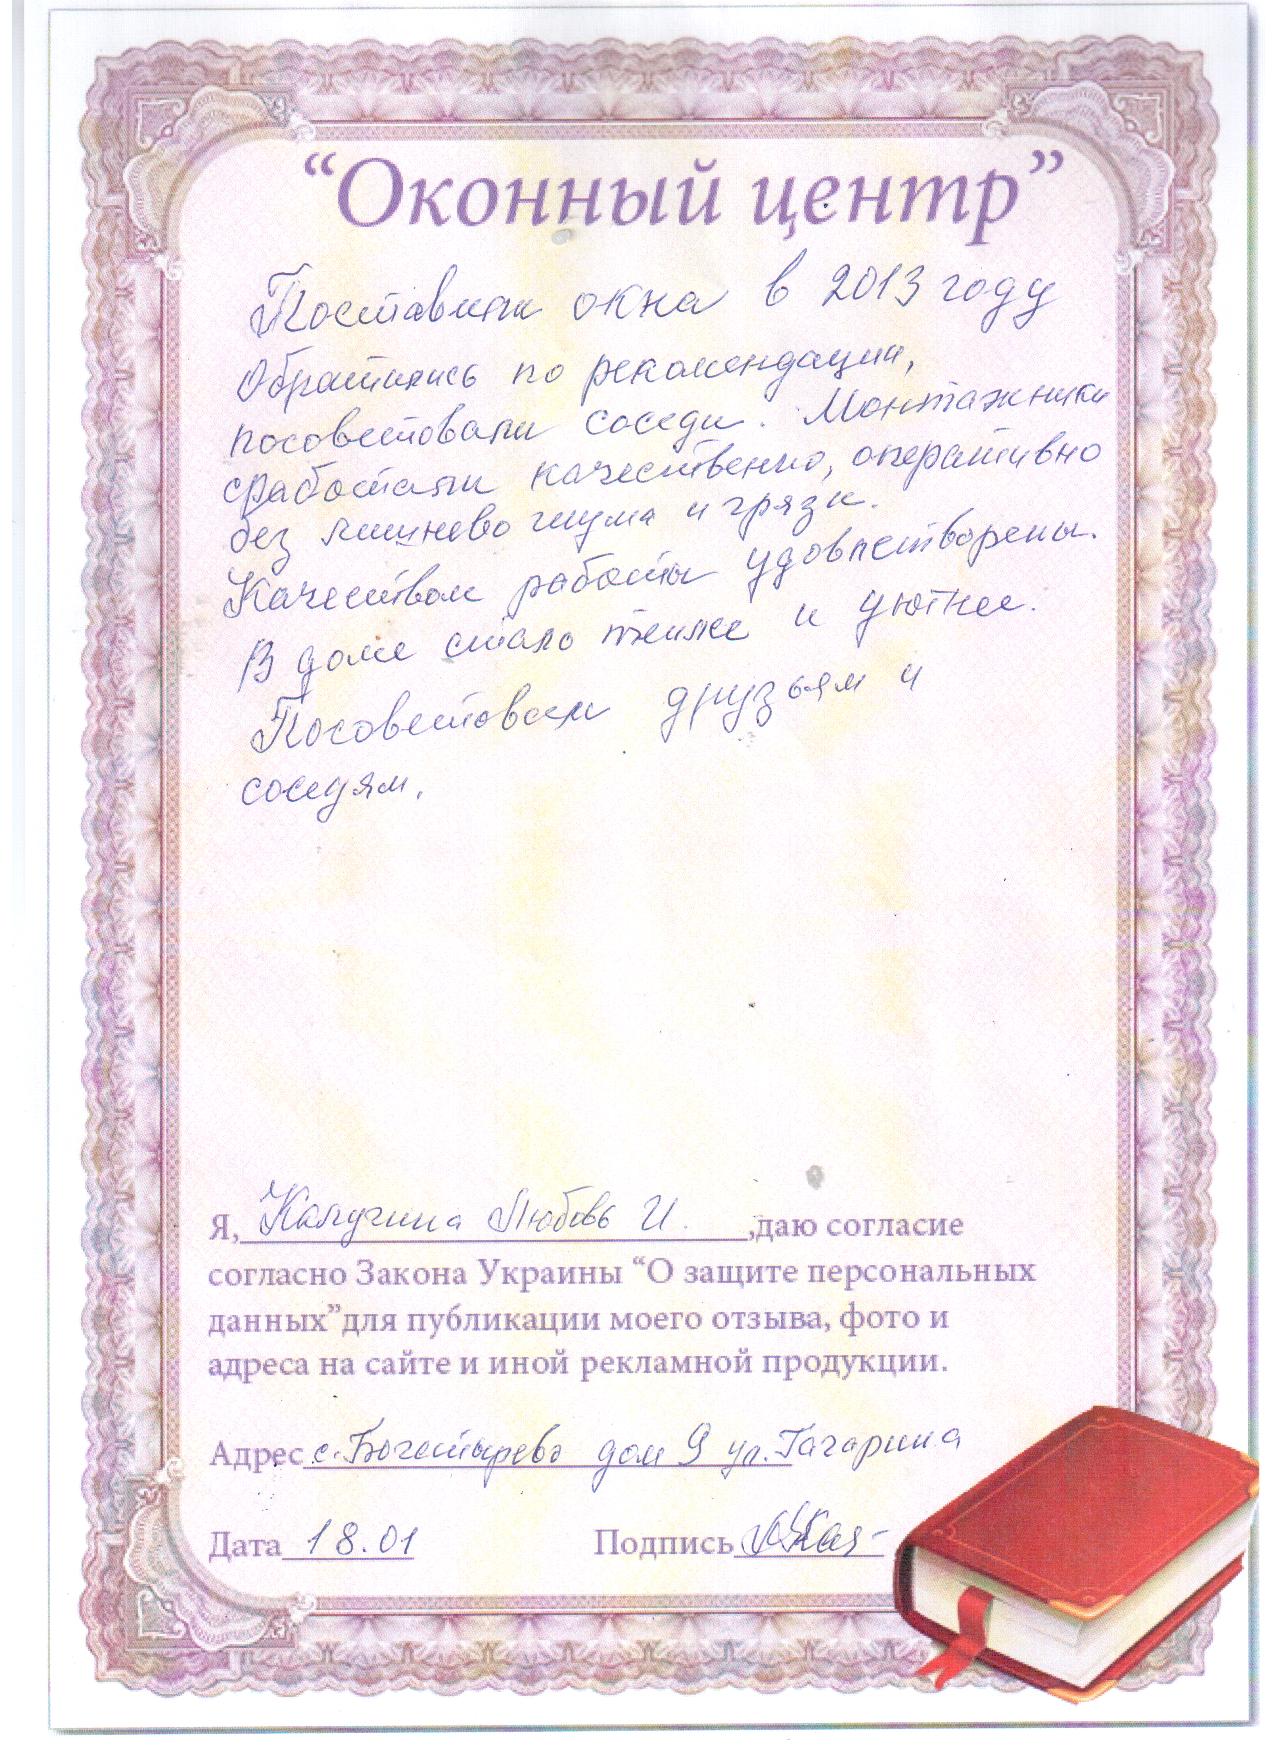 “Оконный центр”
Поставили окна в 2013 году
Обратились по рекомендации,
посоветовали соседи. Монтажники
сработали качественно, оперативно
без лишнево шума и грязи.
Качеством работы удовлетворены.
В доме стало теплее и уютнее.
Посоветовали друзьям и
соседям.
Я, Калугина Любовь И. ,даю согласие
согласно Закона Украины “О защите персональных
данных”для публикации моего отзыва, фото и
адреса на сайте и иной рекламной продукции.
Адрес с. Богатырево дом 9 ул. Гагарина
Дата 18.01 Подпись